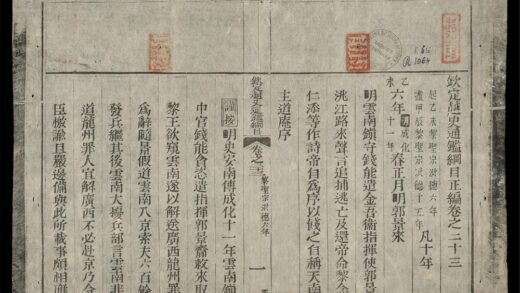 欽定越史通鑑綱目正編卷之二十三
起乙未黎聖宗洪德六年
盡甲辰黎聖宗洪德十五年
凡十年
乙未
六年
明成化十一年
春正月明郭景來
明雲南鎮守錢能遣金吾衛指揮使郭景
洮江路來聲言追捕逃亡及還帝命黎
仁添等作詩帝自為序以餞之自稱天南
主道庵序
欽定越史通鑑綱目 卷之二十三 黎聖宗洪德六年 一
謹按 明史安南傳成化十一年雲南鎮
中官錢能貪恣遣指揮郭景齎敕來取
黎王欲窺雲南遂以解送廣西龍州罪
為辭隨景假道雲南入京索夫六百餘
發兵繼其後雲南大擾兵部言雲南非
道龍州罪人宜解廣西不必赴京乃令
臣檄諭且嚴邊備與此所載事頗相